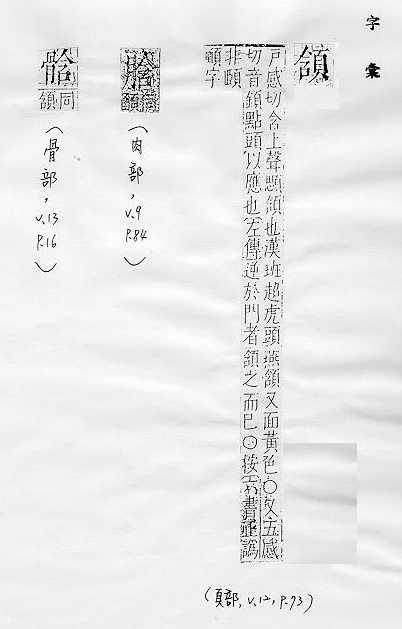 字彙
頷
戸感切含上聲顋頷也漢班超虎頭燕頷又面黃色○又五感
切音頜點頭以應也左傳逆於門者頷之而已○按
非頤
顉字
(頁部, v.12, P.73)
(肉部, v.9 P.84)
同頷
(骨部, v.13 P.16)